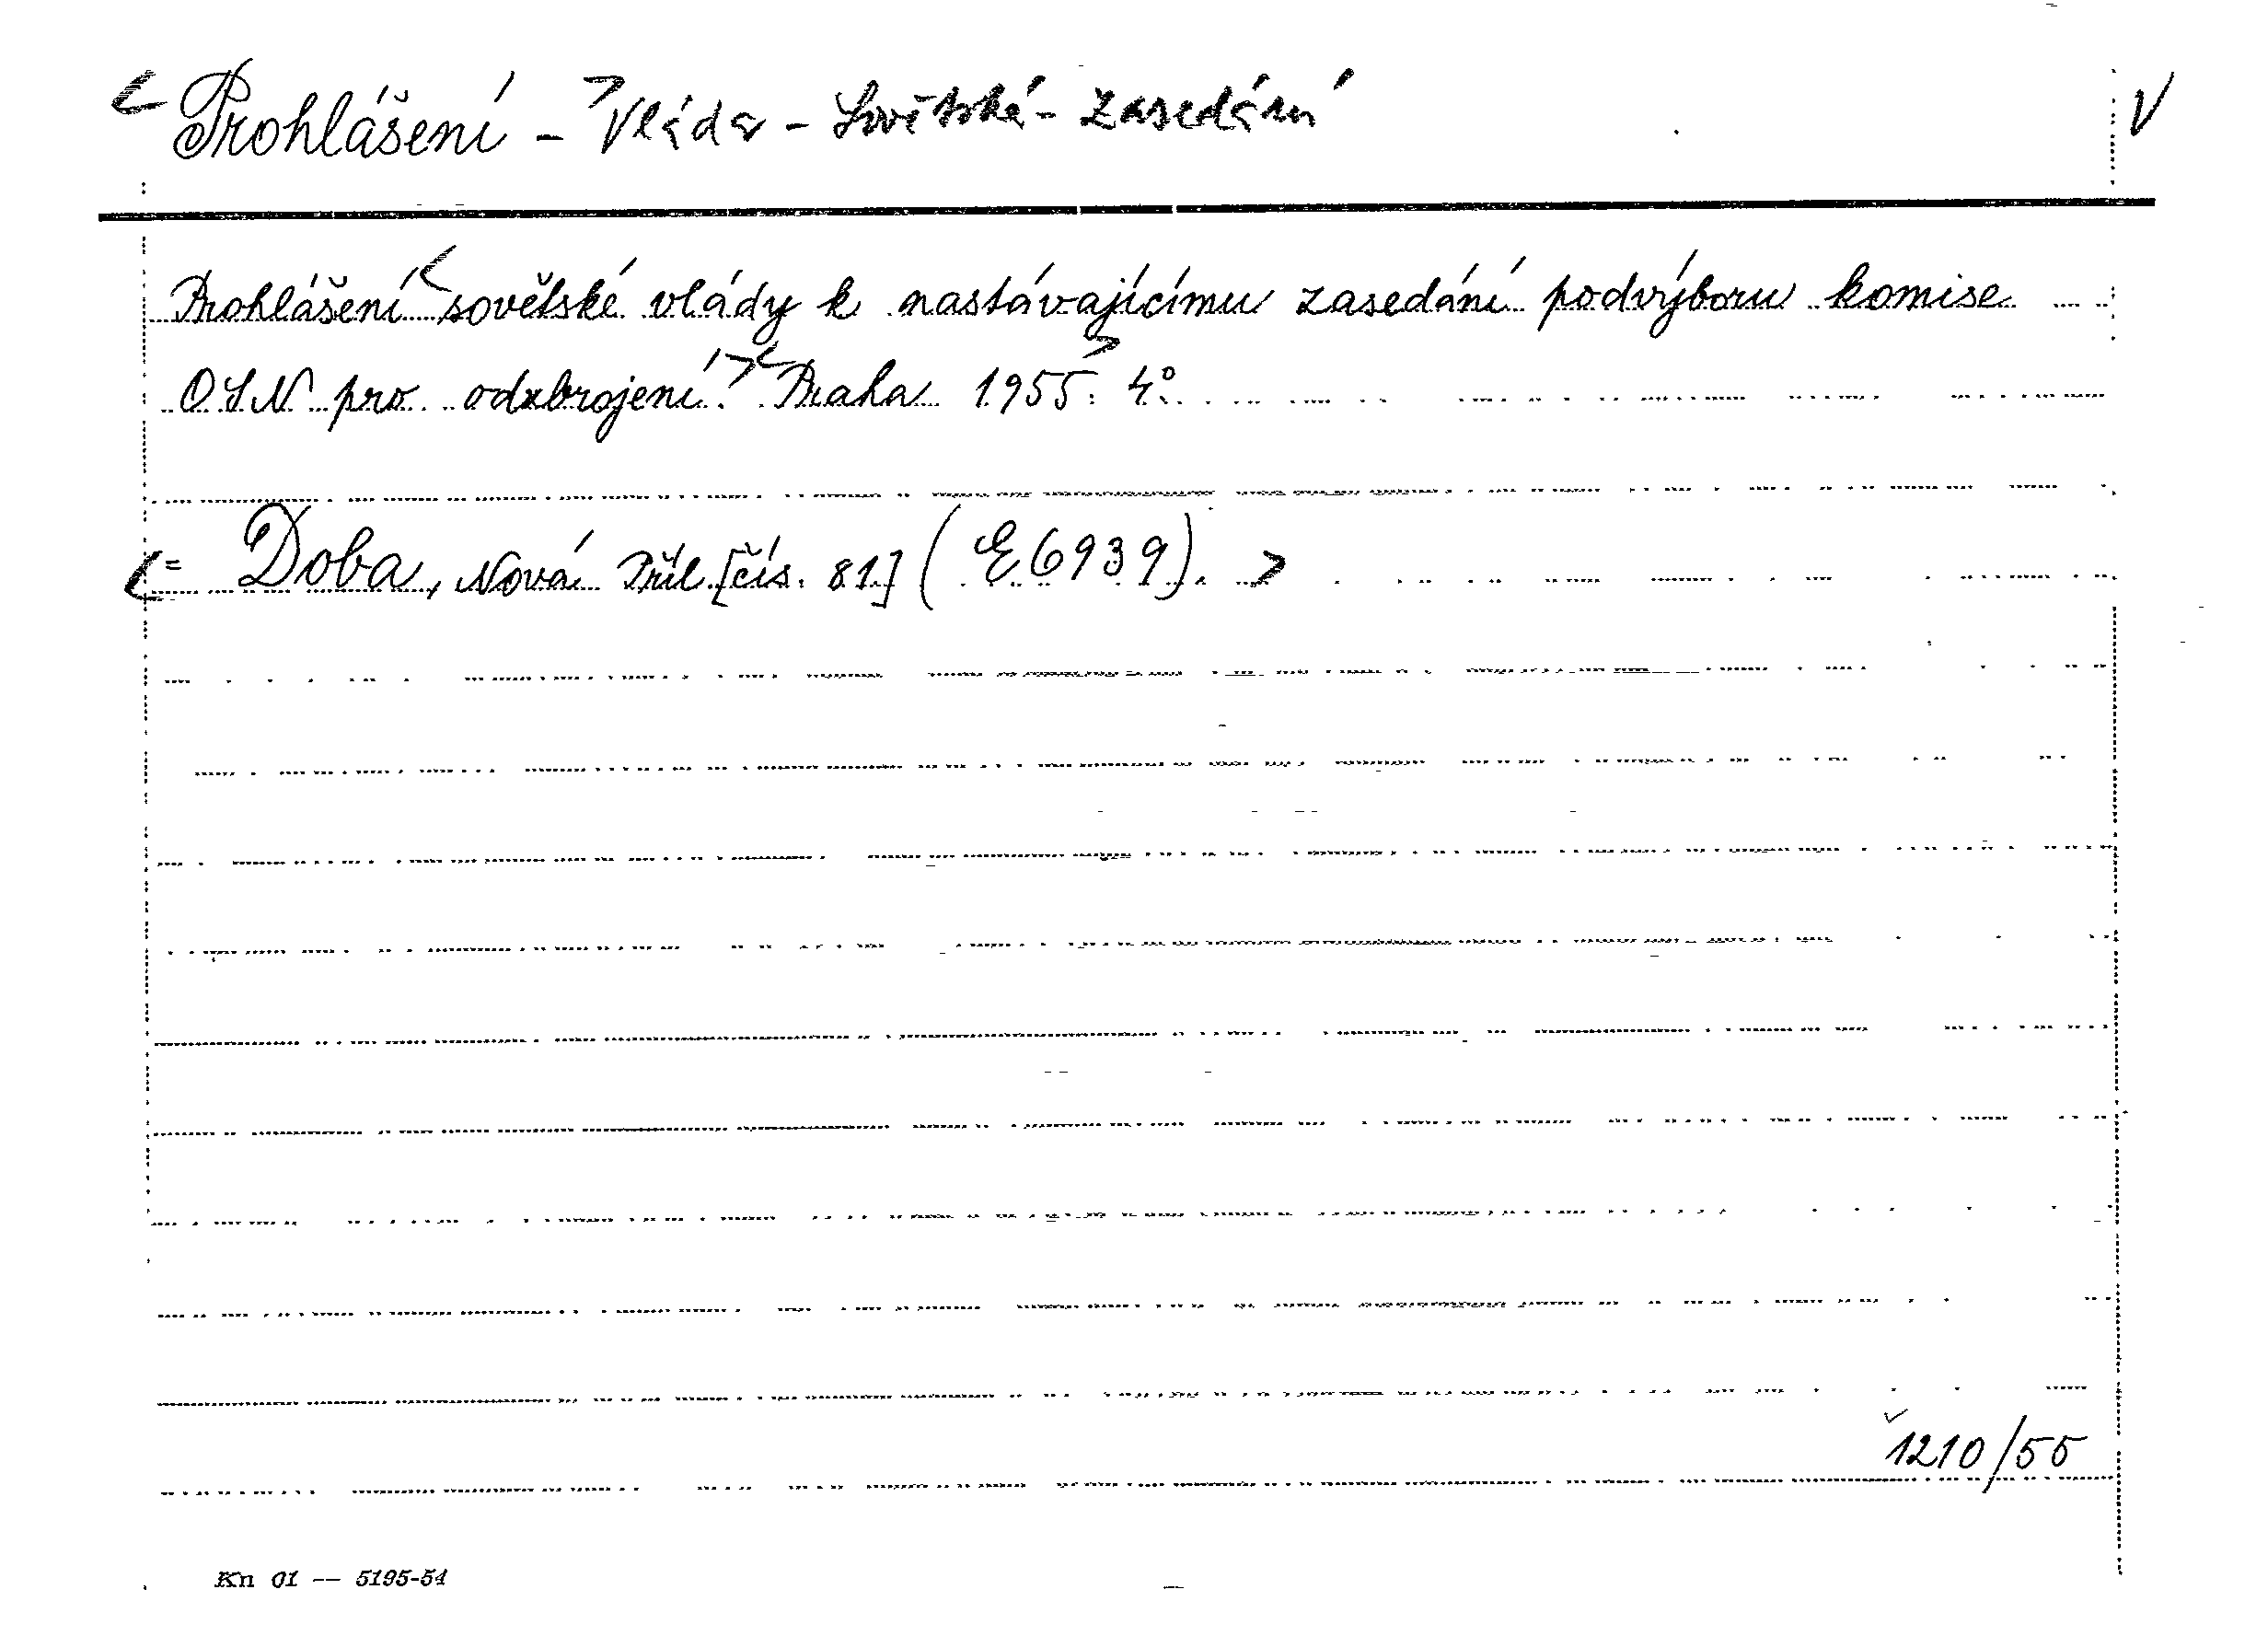 Prohlášení - Vláda - Sovětská - zasedání V
Prohlášení sovětské vlády k nastávajícímu zasedání podvýboru komise
OSN pro odzbrojení. Praha 1955. 4°.
= Doba, Nová Příl. [čís. 81] (E 6939).
1210/55
Kn 01 — 5195-54